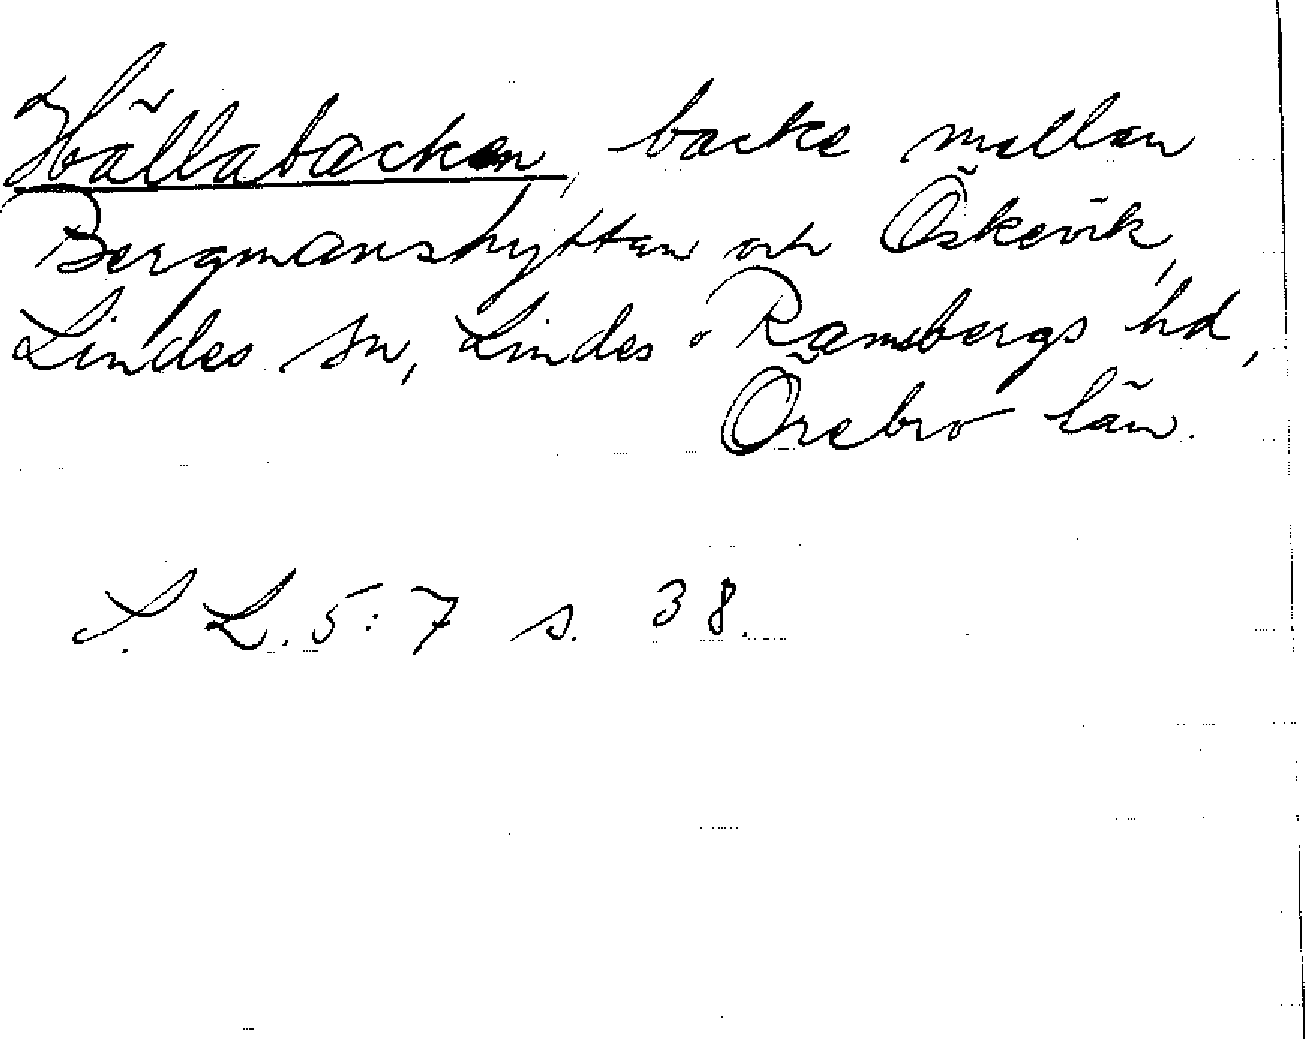 Hällabacken, backe mellan
Bergmanshyttan och Öskevik,
Lindes sn, Lindes o Ramsbergs hd,
Örebro län.
S. L. 5:7 s. 38.